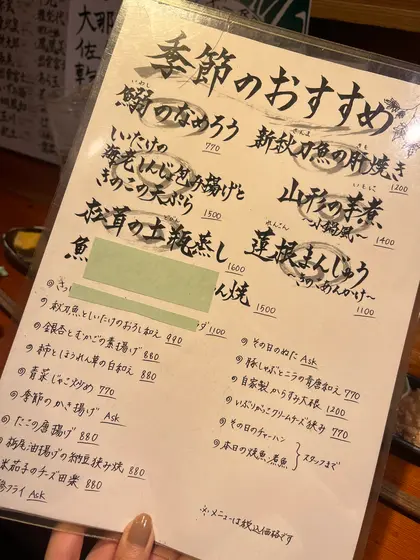 季節のおすすめ
いわし
鰯のなめろう
770
さんま きも
新秋刀魚の肝焼き
1200
いたけの
海老しんじょ包み揚げと
きのこの天ぷら
1500
いもに
山形の芋煮
〜小鍋風〜
1400
松茸の土瓶蒸し
1600
れんこん
蓮根まんじゅう
〜きのこあんかけ〜
1100
魚
ん焼
1500
1100
◎秋刀魚としいたけのおろし和え 990
◎銀杏とむかごの素揚げ 880
◎柿とほうれん草の白和え 880
◎青菜じゃこ炒め 770
◎季節のかき揚げ Ask
◎たこの唐揚げ 880
栃尾油揚げの納豆挟み焼 880
米茄子のチーズ田楽 880
フライ Ask
◎その日のぬた Ask
◎豚しゃぶとニラの 和え 770
◎自家製からすみ大根 1200
◎いぶりがっこクリームチーズ挟み 770
◎その日のチャーハン
◎本日の焼魚・煮魚
スタッフまで
※メニューは税込価格です